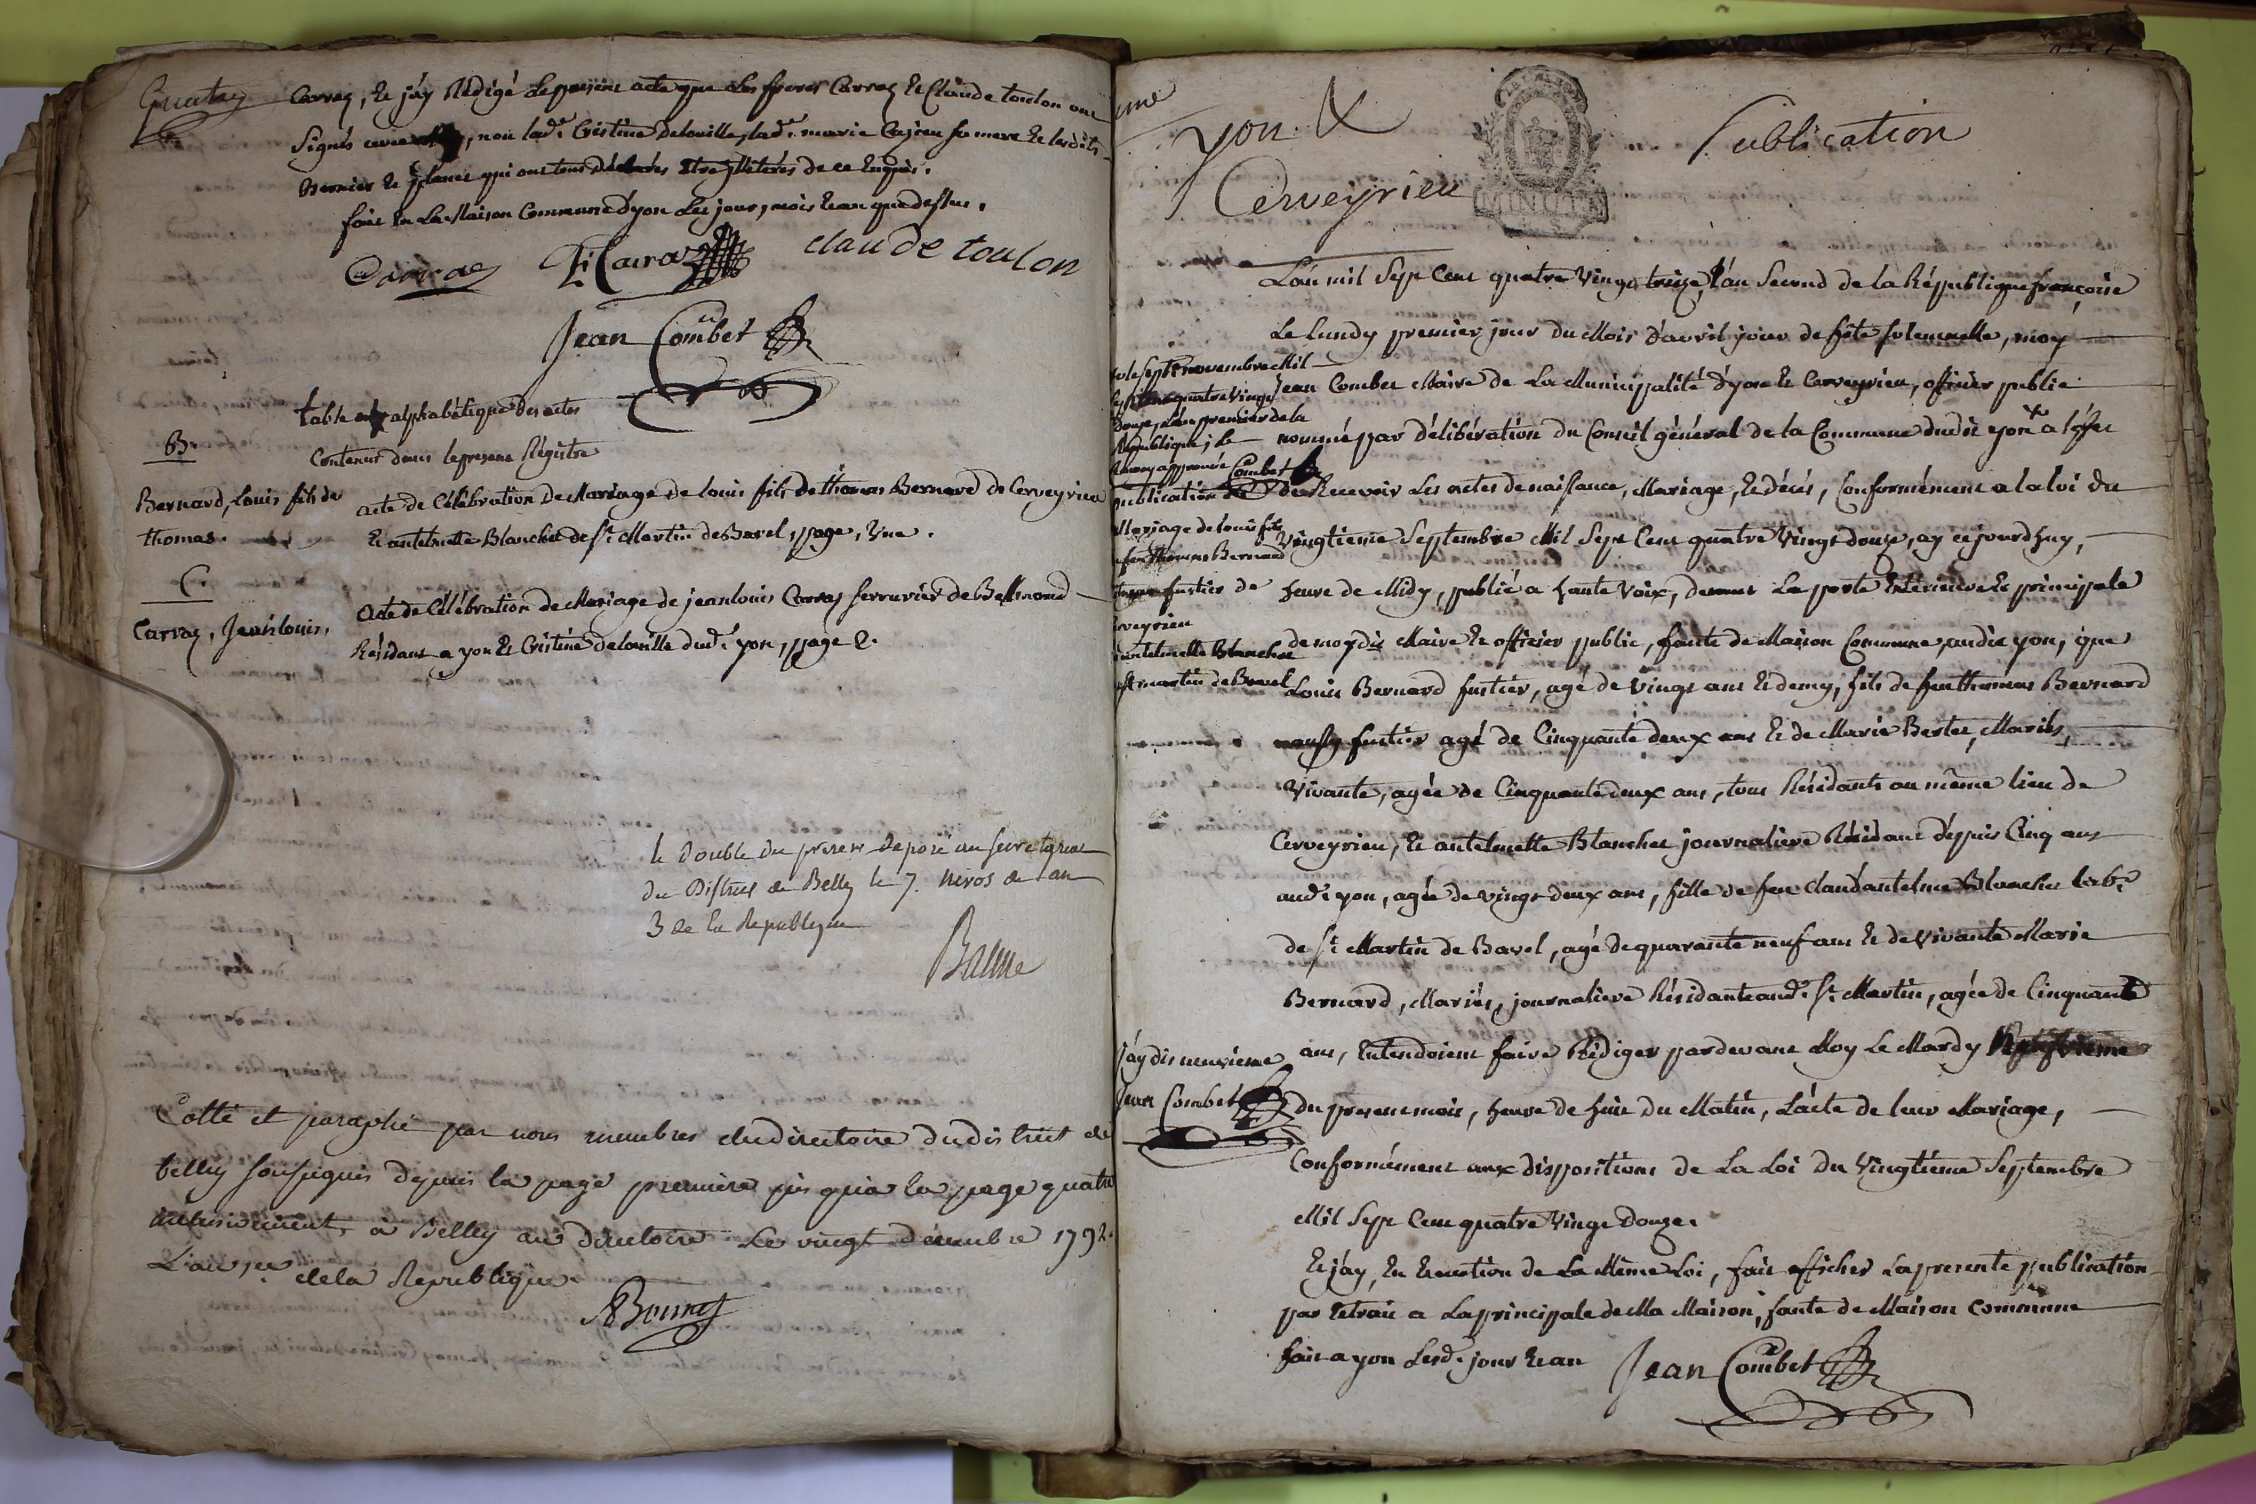 Quatre
Carraz, et j'ay Rédigé le présent acte que les freres Carraz et Claude toulon ont
Signés avec moy, non lad.e Cristine Delouille, lad.e marie Cajeu sa mere et lesdits
Bernier et qui ont tous déclarés être illétérés de ce Enquis.
fait en La Maison Commune d'yon Les jour, mois et an que dessus.
Carraz
claude toulon
Jean Combet
table alphabétique des actes
Contenus dans le present Régistre
B.
Bernard, Louis fils de
thomas.
acte de Célébration de Mariage de Louis fils de thomas Bernard de Cerveyrieu
et antelmette Blanchet de St Martin de Bavel, page, Une.
C.
Carraz, Jeanlouis,
Acte de Célébration de Mariage de jeanlouis Carraz serrurier de Bellmond
Résidant a yon et Cristine Delouille dud.t yon, page 2.
le double du present deposé au secretariat
du District de Belley le 7. nivos de l'an
3 de la Republique
Balme
Cotté et paraphé par nous membres du directoire du district de
belley soussignés depuis la page premiere jusqu'a la page quatre
inclusivement, à Belley au directoire Le vingt décembre 1792.
L'an 1er de la Republique.
une
yon &
Cerveyrieu
Publication
L'an mil Sept Cent quatre Vingt treize, l'an Second de la République françoise
Le Lundy premier jour du Mois d'avril jour de fête solennelle, moy
Jean Combet Maire de La Municipalité d'yon et Cerveyrieu, officier public
nommé par délibération du Conseil général de la Commune dudit yon a l'effet
de Recevoir Les actes de naissance, Mariage, et décès, Conformément a la loi du
Vingtieme Septembre Mil Sept Cent quatre Vingt douze, ay cejourd'huy,
heure de Midy, publié a haute Voix, devant La porte Exterieure et principale
de moydit Maire et officier public, faute de Maison Commune, audit yon, que
Louis Bernard fustier, agé de Vingt ans et demy, fils de feu thomas Bernard
fustier agé de Cinquante deux ans et de Marie Bertet, Mariés,
Vivante, agée de Cinquante deux ans, tous Résidants au même lieu de
Cerveyrieu, Et antelmette Blanchet journaliere Résidant depuis Cinq ans
aud.t yon, agée de vingt deux ans, fille de feu Claudantelme Blanchet lab.r
de St Martin de Bavel, agé de quarante neuf ans et de Vivante Marie
Bernard, Mariés, journaliere Résidante aud.t St Martin, agée de Cinquante
ans, Entendoient faire Rédiger pardevant Moy Le Mardy
du present mois, heure de huit du Matin, L'acte de leur Mariage,
Conformément aux dispositions de La Loi du Vingtieme Septembre
Mil Sept Cent quatre Vingt Douze.
Et j'ay, En Execution de La Même Loi, fait afficher La presente publication
par Extrait a La principale de Ma Maison, faute de Maison Commune
fait a yon Lesd.t jour et an Jean Combet
le sept novembre Mil
Sept Cent quatre Vingt
Douze, L'an premier de la
République; Le
Renvoy approuvé Combet
publication de
Mariage de louis fils
feu thomas Bernard
fustier de
Cerveyrieu
antelmette Blanchet
St martin de Bavel
j'ay dis neuvieme
Jean Combet